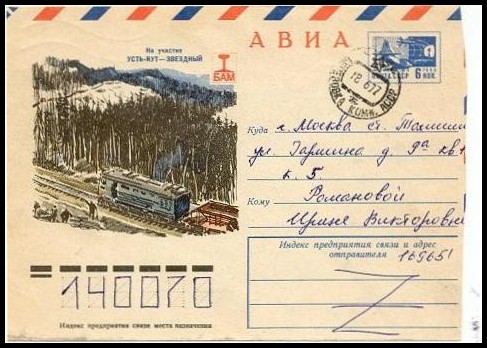 АВИА
На участке
УСТЬ-КУТ—ЗВЕЗДНЫЙ
БАМ
ПОЧТА СССР 6 КОП.
18 6 77
КОМИ АССР
Куда г. Москва ст. Томилино
ул. Гаршина д. 9а кв. 1
к. 5
Кому Романовой
Ирине Викторовне
Индекс предприятия связи и адрес
отправителя 169651
140070
Индекс предприятия связи места назначения